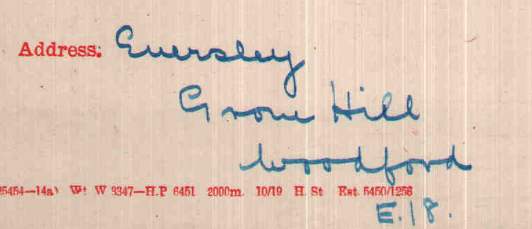 Address: Eversley
Grove Hill
Woodford
25454—14a) Wt W 9347—H.P 6451 2000m. 10/19 H. St Est. 5450/1256
E.18.